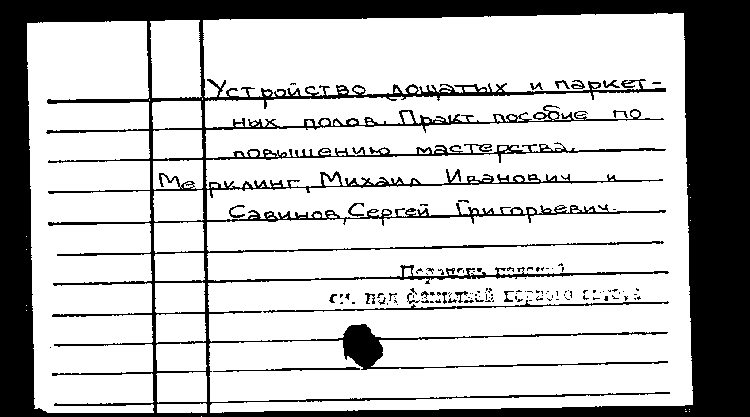 Устройство дощатых и паркет-
ных полов. Практ. пособие по
повышению мастерства.
Мерклинг, Михаил Иванович и
Савинов, Сергей Григорьевич.
Перечень изданий
см. под фамилией первого автора